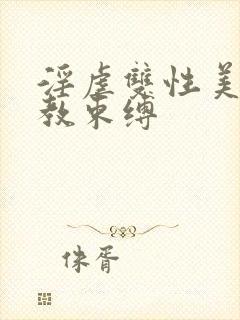 淫虐雙性美
教束縛
侏胥